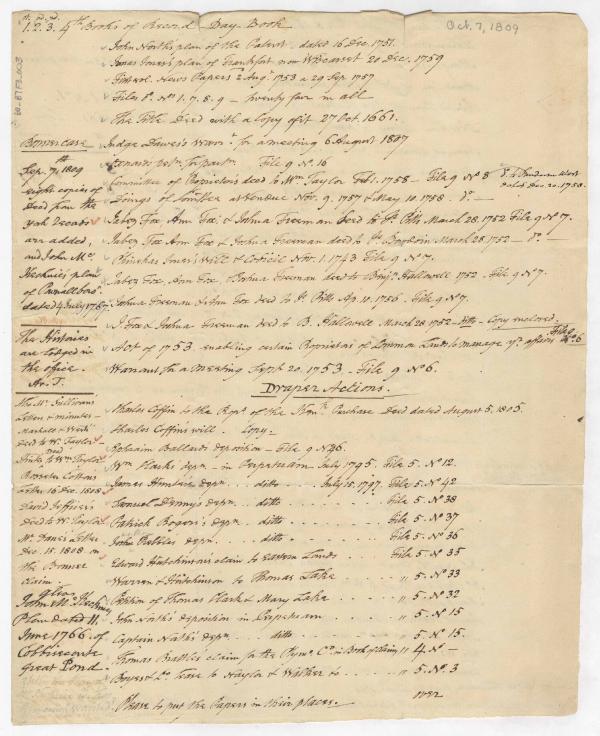 Oct. 7, 1809
1. 2. 3. 4th Books of Record Day Book
John North's plan of the Patent dated 16 Dec. 1751.
Jonas Jones's plan of Frankfort on Wiscasset 20 Dec. 1759
News Papers 2 Augt. 1753 a 29 Sep. 1757
Files No. 1. 7. 8. 9 — twenty four in all
The Title Deed with a Copy of it 27 Oct. 1661.
Bowercase
Sep. 7th 1809
eight copies of
Deed from the
York Records
are added,
and John Mc.
Kechnie's plan
of Pownallboro'
dated 4 July 1767.
The Histories
are lodged in
the office.
Ar. T.
Judge Dawes's Warrt. for a meeting 6 August 1807
File 9 No. 16
Committee of Proprietors deed to Wm. Taylor Feb. 1. 1758 — File 9 No. 8
Dated Dec. 20. 1758.
Doings of Committee at vendue Nov. 9. 1757 & May 10. 1758 — do. —
Jabez Fox, Ann Fox, & Joshua Freeman deed to Js. Pitts March 28. 1752 File 9 No. 7.
Jabez Fox Ann Fox & Joshua Freeman deed to Js. Bowdoin March 28. 1752 — do. —
Phinehas Jones's will & Codicil Nov. 1. 1743 File 9 No. 7.
Jabez Fox, Ann Fox, & Joshua Freeman deed to Benjn. Hallowell 1752. File 9 No. 7.
Joshua Freeman & Ann Fox deed to Js. Pitts Ap. 10. 1756. File 9 No. 7.
J. Fox & Joshua Freeman deed to B. Hallowell March 28. 1752 — ditto — Copy enclosed.
Act of 1753 enabling certain Proprietors of Common Lands to manage ye. affairs File 9 No. 6
Warrant for a meeting Sept. 20. 1753. File 9 No. 6.
Draper Actions.
The Mr. Sullivans
letter & minutes
Marshall &
deed to W. Taylor
Deed
to Wm. Taylor
Rossiter Cottons
letter 16 Dec. 1808
David Jeffries's
Deed to W. Taylor
Mr. Davis's letter
Dec. 15. 1808 on
the Browne
claim.
also
John Mc. Kechnies
Plan dated 11
June 1766. of
Cobbiseconte
Great Pond.
Charles Coffin to the Propr. of the Kenn. Purchase Deed dated August 5. 1805.
Charles Coffins will. Copy.
Ephraim Ballards deposition — File 9 No. 46.
Wm. Clarks depn. — in Perpetuam July 1795. File 5. No. 12.
James depn. ... ditto ... July 15. 1797. File 5. No. 42
Samuel Denny's depn. ditto . . . . . File 5. No. 38
Patrick Rogers's depn. ditto . . . . . File 5. No. 37
John Pebbles depn. ditto . . . . . File 5. No. 36
Edward Hutchinson's claim to Eastern Lands . . . File 5. No. 35
Warren & Hutchinson to Thomas Lake . . . . " 5. No. 33
Petition of Thomas Clark & Mary Lake . . . . " 5. No. 32
John North's deposition in Perpetuam . . . . " 5. No. 15
Captain Noth's depn. ... ditto . . . . . " 5. No. 15.
Thomas Brattles claim for the Plymo. Co. in Book of Claims " 4. No. —
Boyes & Co. lease to Naylor & Walker to . . . " 5. No. 3
over
Please to put the Papers in their places.